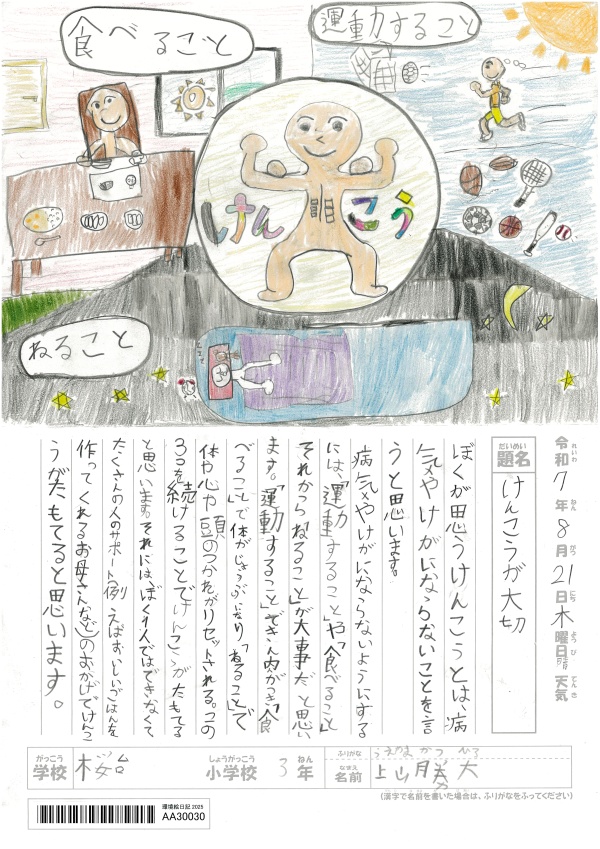 食べるごと
運動すること
けんこう
ねること
令和7年8月21日木曜日晴天気
れいわ ねん がつ にち ようび てんき
だいめい
題名
けんこうが大切
ぼくが思うけんこうとは、病
気やけがにならないことを言
うと思います。
病気やけがにならないようにする
には、「運動すること」や「食べること」
それから「ねること」が大事だと思い
ます。「運動すること」できん肉がつき「食
べること」で体がじょうぶになり「ねること」で
体や心や頭のつかれがリセットされる。この
3つを続けることでけんこうがたもてる
と思います。それには、ぼく1人ではできなくて
たくさんの人のサポート例えばおいしいごはんを
作ってくれるお母さんなどのおかげでけんこ
うがたもてると思います。
がっこう
学校
桜台
しょうがっこう
小学校
3
ねん
年
ふりがな
うえやま かつ ひろ
なまえ
名前
上山 勝大
(漢字で名前を書いた場合は、ふりがなをふってください)
環境絵日記 2025
AA30030